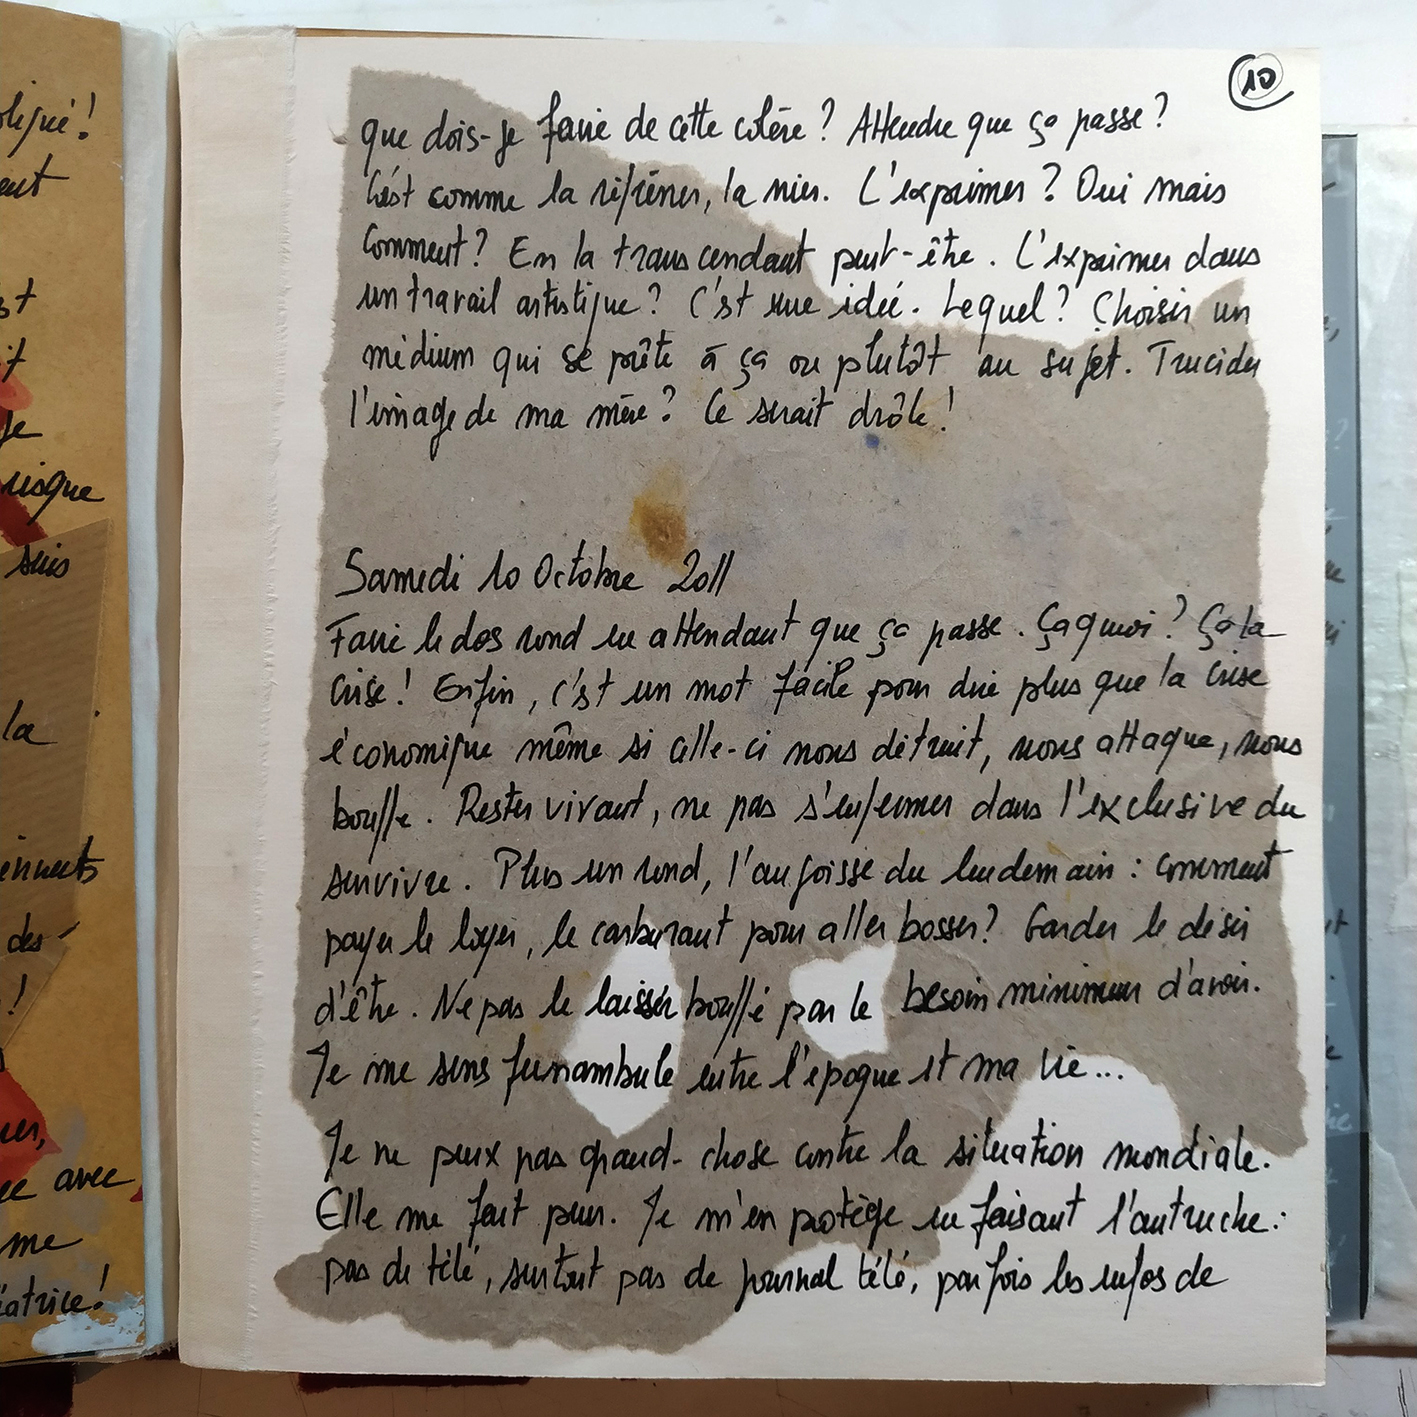 10
que dois-je faire de cette colère ? Attendre que ça passe ?
C'est comme la réfréner, la nier. L'exprimer ? Oui mais
Comment ? En la transcendant peut-être. L'exprimer dans
un travail artistique ? C'est une idée. Lequel ? Choisir un
médium qui se prête à ça ou plutôt au sujet. Trucider
l'image de ma mère ? Ce serait drôle !
Samedi 10 Octobre 2011
Faire le dos rond en attendant que ça passe. Ça quoi ? Ça la
Crise ! Enfin, c'est un mot facile pour dire plus que la Crise
économique même si celle-ci nous détruit, nous attaque, nous
bouffe. Rester vivant, ne pas s'enfermer dans l'exclusive du
survivre. Plus un rond, l'angoisse du lendemain : comment
payer le loyer, le carburant pour aller bosser ? Garder le désir
d'être. Ne pas le laisser bouffé par le besoin minimum d'avoir.
Je me sens funambule entre l'époque et ma vie...
Je ne peux pas grand-chose contre la situation mondiale.
Elle me fait peur. Je m'en protège en faisant l'autruche :
pas de télé, surtout pas de journal télé, parfois les infos de
risque
suis
la
des
avec
me